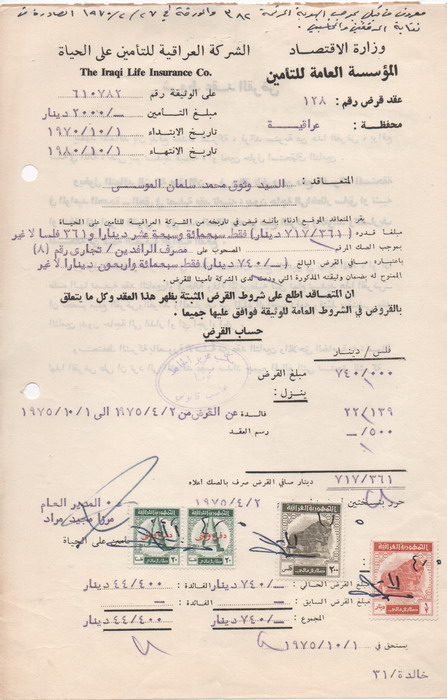 وزارة الاقتصاد
المؤسسة العامة للتأمين
الشركة العراقية للتأمين على الحياة
The Iraqi Life Insurance Co.
عقد قرض رقم : ١٢٨
محفظة : عراقية
على الوثيقة رقم ٦١٠٧٨٢
مبلغ التأمين ٢٠٠٠/- دينار
تاريخ الابتداء ١٩٧٠/١٠/١
تاريخ الانتهاء ١٩٨٠/١٠/١
المتعاقد : السيد وثوق محمد سلمان الموسى
يقر المتعاقد الموقع ادناه بانه قبض في تاريخه من الشركة العراقية للتأمين على الحياة
مبلغا قدره (٧١٧/٣٦١ دينار) فقط سبعمائة وسبعة عشر دينارا و٣٦١ فلسا لا غير
بموجب الصك المرقم المسحوب على مصرف الرافدين / تجارى رقم (٨)
باعتباره صافي القرض البالغ (-/٧٤٠ دينار) فقط سبعمائة واربعون دينارا لا غير
الممنوح له بضمان وثيقته المذكورة التي اودعت لدى الشركة تأمينا للقرض .
ان المتعاقد اطلع على شروط القرض المثبتة بظهر هذا العقد وكل ما يتعلق
بالقروض في الشروط العامة للوثيقة فوافق عليها جميعها .
حساب القرض
فلس / دينار
مبلغ القرض ٧٤٠/٠٠٠
ينزل :
فائدة عن القرض من ١٩٧٥/٤/٢ الى ١٩٧٥/١٠/١ ٢٢/١٣٩
رسم العقد -/٥٠٠
دينار صافي القرض صرف بالصك اعلاه ٧١٧/٣٦١
حرر بنسختين ١٩٧٥/٤/٢
المدير العام
مجيد مراد
للتأمين على الحياة
الجمهورية العراقية
الجمهورية العراقية
الجمهورية العراقية
الجمهورية العراقية
القرض الحالي : -/٧٤٠ دينار الفائدة : ٤٤/٤٠٠ دينار
القرض السابق : — دينار الفائدة : — دينار
المجموع : -/٧٤٠ دينار ٤٤/٤٠٠ دينار
يستحق في ١٩٧٥/١٠/١
خالدة/٣١